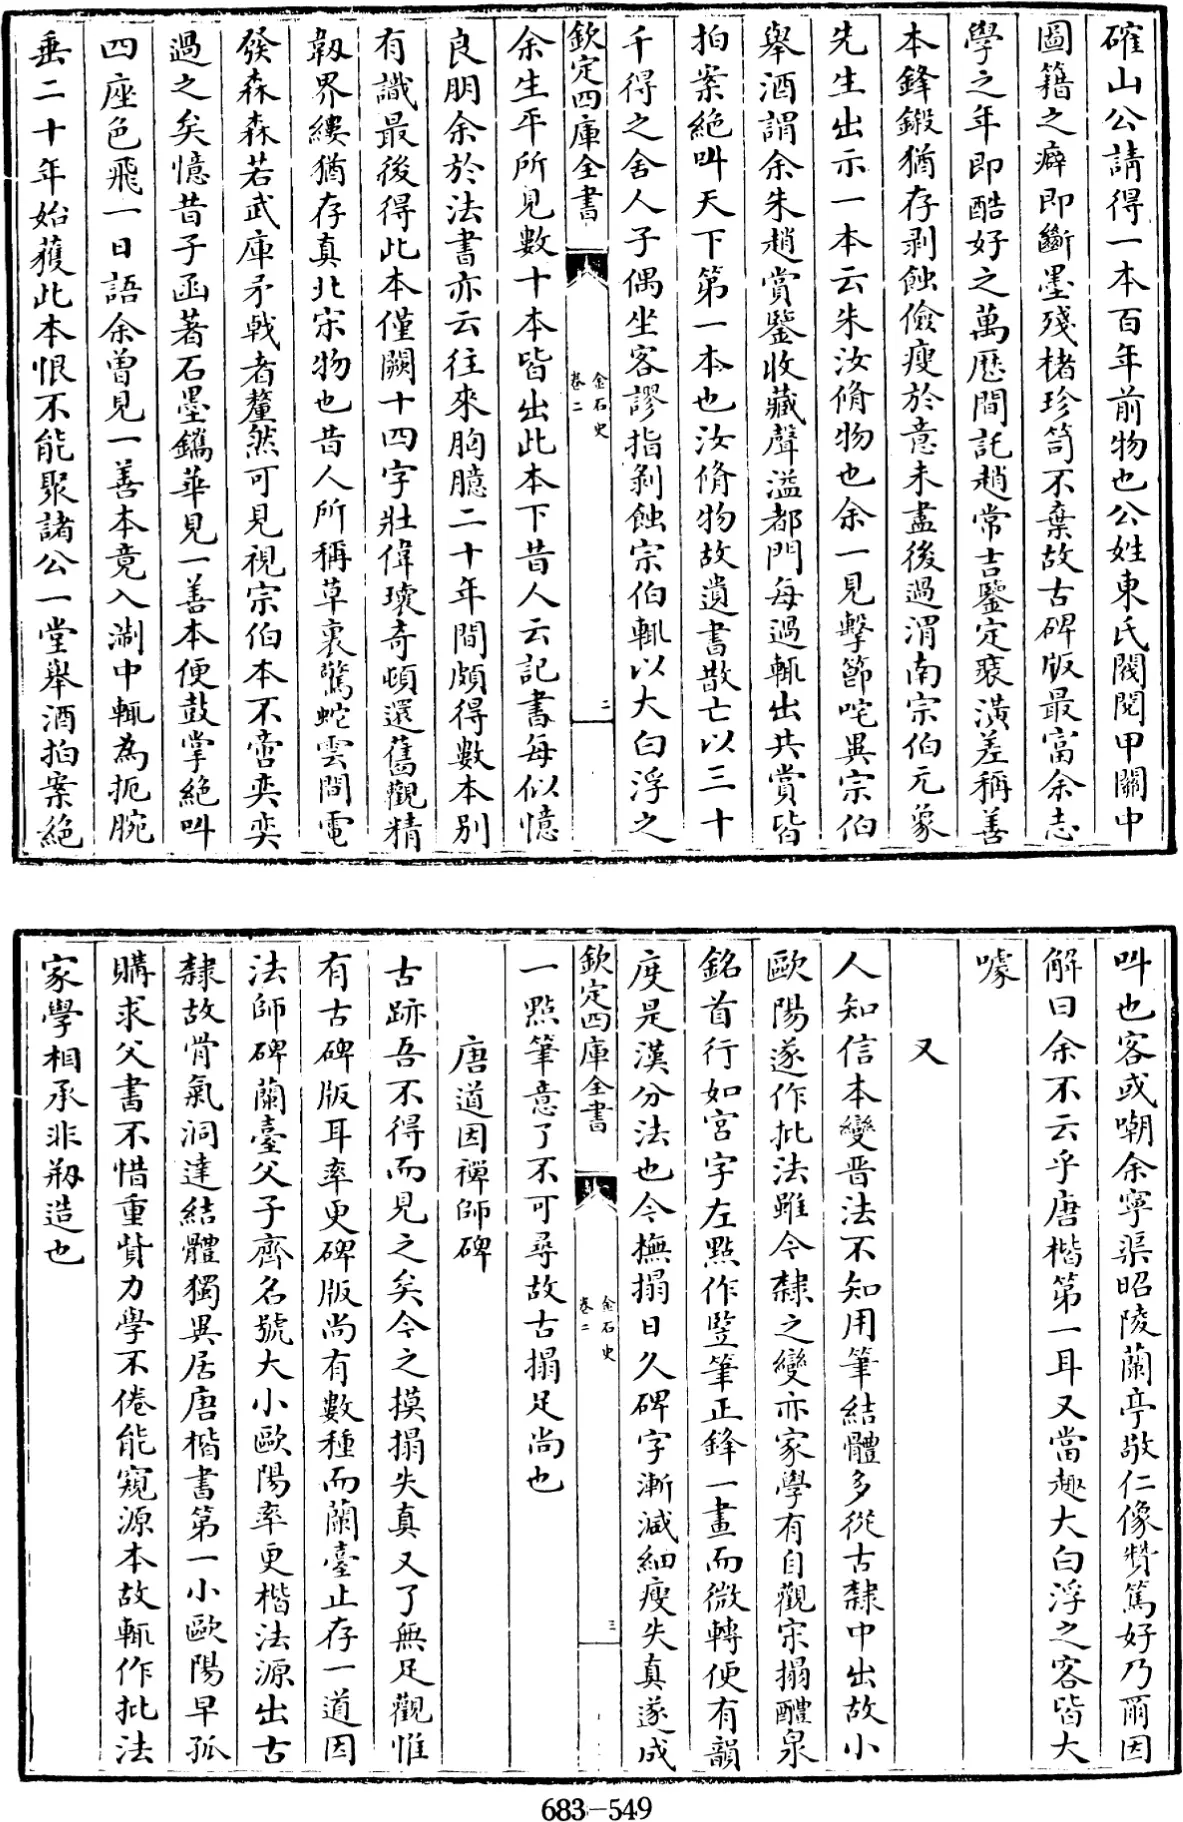 確山公請得一本百年前物也公姓東氏閥閱甲關中
圖籍之癖即斷墨殘楮珍笥不棄故古碑版最富余志
學之年即酷好之萬歷間託趙常吉鑒定裒潢差稱善
本鋒鎩猶存剥蝕儉瘦於意未盡後過渭南宗伯元象
先生出示一本云朱汝脩物也余一見擊節咤異宗伯
舉酒謂余朱趙賞鑒收藏聲溢都門每過輒出共賞皆
拍案絶叫天下第一本也汝脩物故遺書散亡以三十
千得之舍人子偶坐客謬指剥蝕宗伯輒以大白浮之
欽定四庫全書
金石史
卷二
二
余生平所見數十本皆出此本下昔人云記書每似憶
良朋余於法書亦云往來胸臆二十年間頗得數本别
有識最後得此本僅闕十四字壯偉瓌奇頓還舊觀精
韌界縷猶存真北宋物也昔人所稱草裏驚蛇雲間電
發森森若武庫矛戟者釐然可見視宗伯本不啻奕奕
過之矣憶昔子函著石墨鐫華見一善本便鼓掌絶叫
四座色飛一日語余曾見一善本竟入淛中輒為扼腕
垂二十年始獲此本恨不能聚諸公一堂舉酒拍案絶
叫也客或嘲余寧渠昭陵蘭亭敬仁像贊篤好乃爾因
解曰余不云乎唐楷第一耳又當趣大白浮之客皆大
噱
又
人知信本變晋法不知用筆結體多從古隸中出故小
歐陽遂作批法雖今隸之變亦家學有自觀宋搨醴泉
銘首行如宫字左㸃作竪筆正鋒一畫而微轉便有韻
度是漢分法也今撫搨日久碑字漸減細瘦失真遂成
欽定四庫全書
金石史
卷二
三
一㸃筆意了不可尋故古搨足尚也
唐道因禪師碑
古跡吾不得而見之矣今之摸搨失真又了無足觀惟
有古碑版耳率更碑版尚有數種而蘭臺止存一道因
法師碑蘭臺父子齊名號大小歐陽率更楷法源出古
隸故骨氣洞達結體獨異居唐楷書第一小歐陽早孤
購求父書不惜重貲力學不倦能窺源本故輒作批法
家學相承非剏造也
683-549